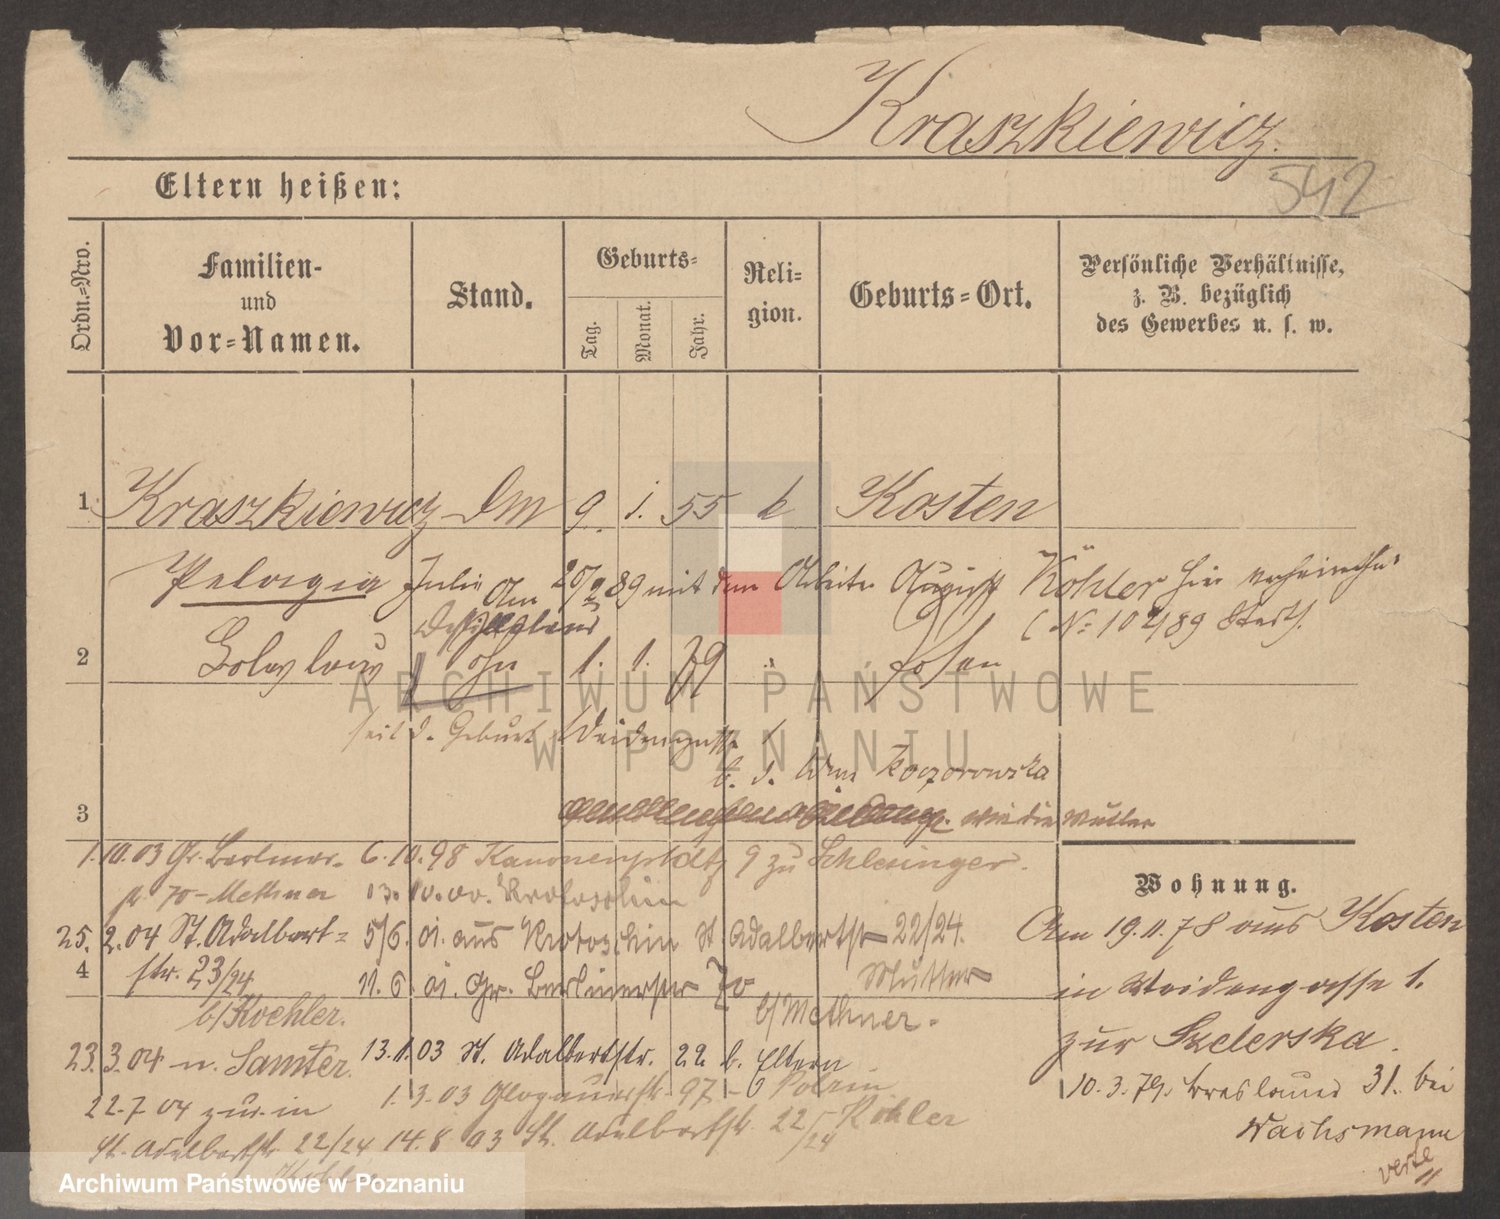 Kraszkiewicz.
542
Eltern heißen:
Ordn.=Nro.
Familien-
und
Vor=Namen.
Stand.
Geburts=
Tag.
Monat.
Jahr.
Reli=
gion.
Geburts=Ort.
Persönliche Verhältnisse,
z. B. bezüglich
des Gewerbes u. s. w.
1 Kraszkiewicz 9. 1. 55 k Kosten
Pelagia Julie Am 89 mit dem Arbeiter August Köhler hier
2 1. 1. 79 Posen
seit d. Geburt Weidengasse 1
b. d. Wwe Koczorowska
3 wie die Mutter
1.10.03 Gr. Berliner- 6.10.98 Kanonenplatz 9 zu Schlesinger.
70 - Methner 13.10.00. Krotoschin
25.2.04 St. Adalbert= 5/6. 01. aus Krotoschin St Adalbertstr 22/24.
4 str. 23/24 11.6.01. Gr. Berlinerstr 70 Mutter
b/Koehler. b/Methner.
23.3.04 n. Samter. 13.1.03 St. Adalbertstr. 22 b. Eltern
22.7.04 zur. in 1.3.03 Glogauerstr. 97 -
St. Adalbertstr 22/24 14.8.03 St. Adalbertstr. 22/24 - Köhler
Wohnung.
Am 19.11.78 aus Kosten
in Weidengasse 1.
zur Szelerska.
10.3.79. Breslauer 31. bei
Wachsmann
verte
ARCHIWUM PAŃSTWOWE
W POZNANIU
Archiwum Państwowe w Poznaniu